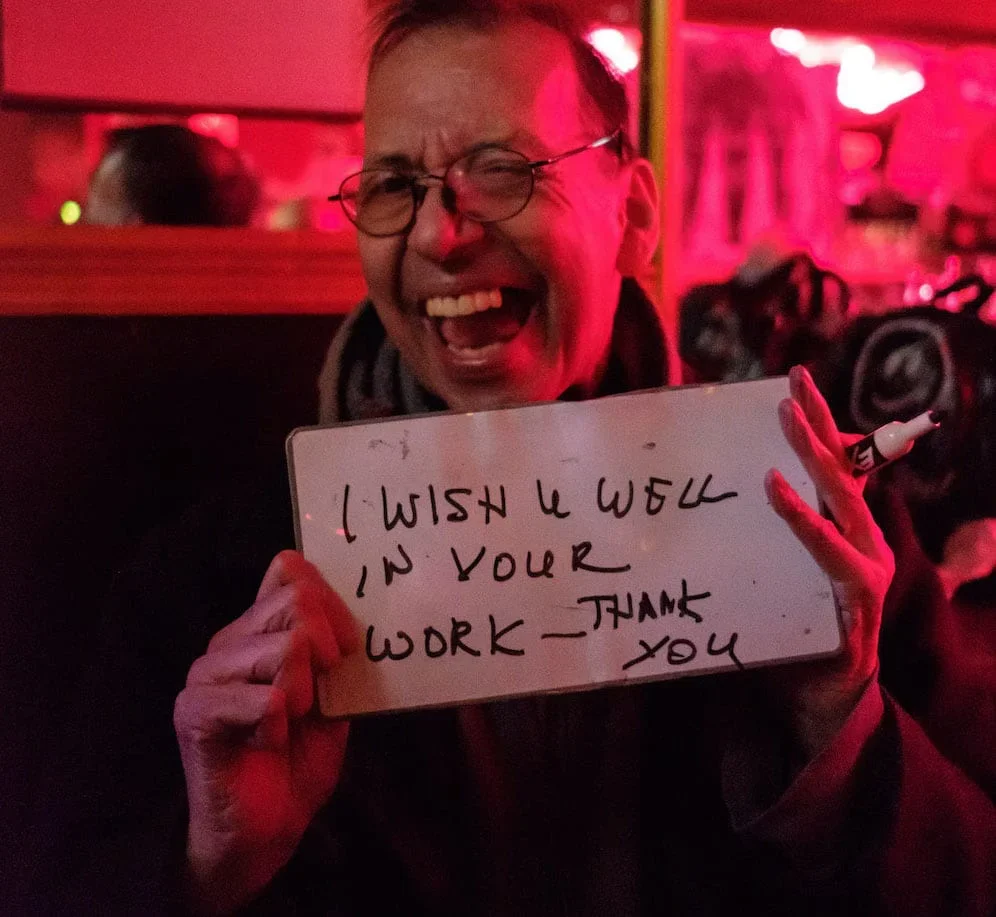 I WISH U WELL
IN YOUR
WORK — THANK
YOU